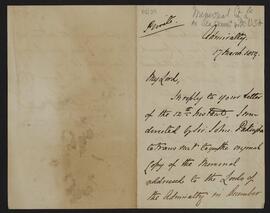 Private
Admiralty
17 March 1859.
My Lord,
In reply to your letter
of the 12th Instant, I am
directed by Sir John Pakington
to transmit to you the original
Copy of the Memorial
addressed to the Lords of
the Admiralty in December